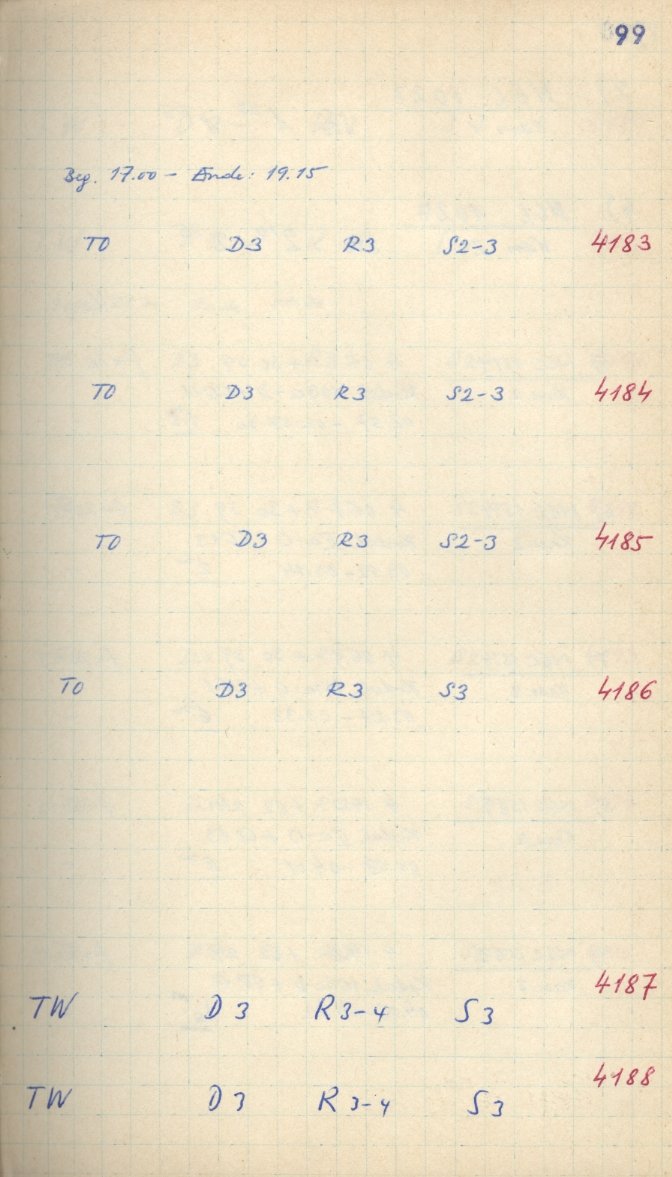 99
Beg. 17.00 - Ende: 19.15
TO D3 R3 S2-3 4183
TO D3 R3 S2-3 4184
TO D3 R3 S2-3 4185
TO D3 R3 S3 4186
TW D3 R3-4 S3 4187
TW D3 R3-4 S3 4188